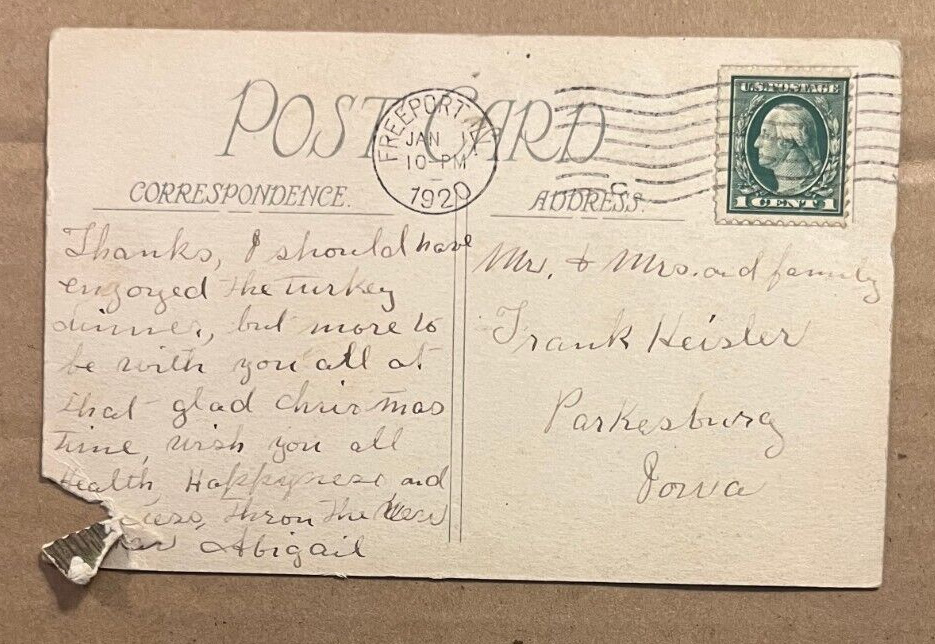 POST CARD
FREEPORT
JAN 1
10-PM
1920
U.S. POSTAGE
1 CENT 1
CORRESPONDENCE.
ADDRESS.
Thanks, I should have
engoyed the turkey
dinner, but more to
be with you all at
that glad christmas
time, wish you all
Health, Happyness and
thron the New
Abigail
Mr. & Mrs. and family
Frank Heisler
Parkesburg
Iowa